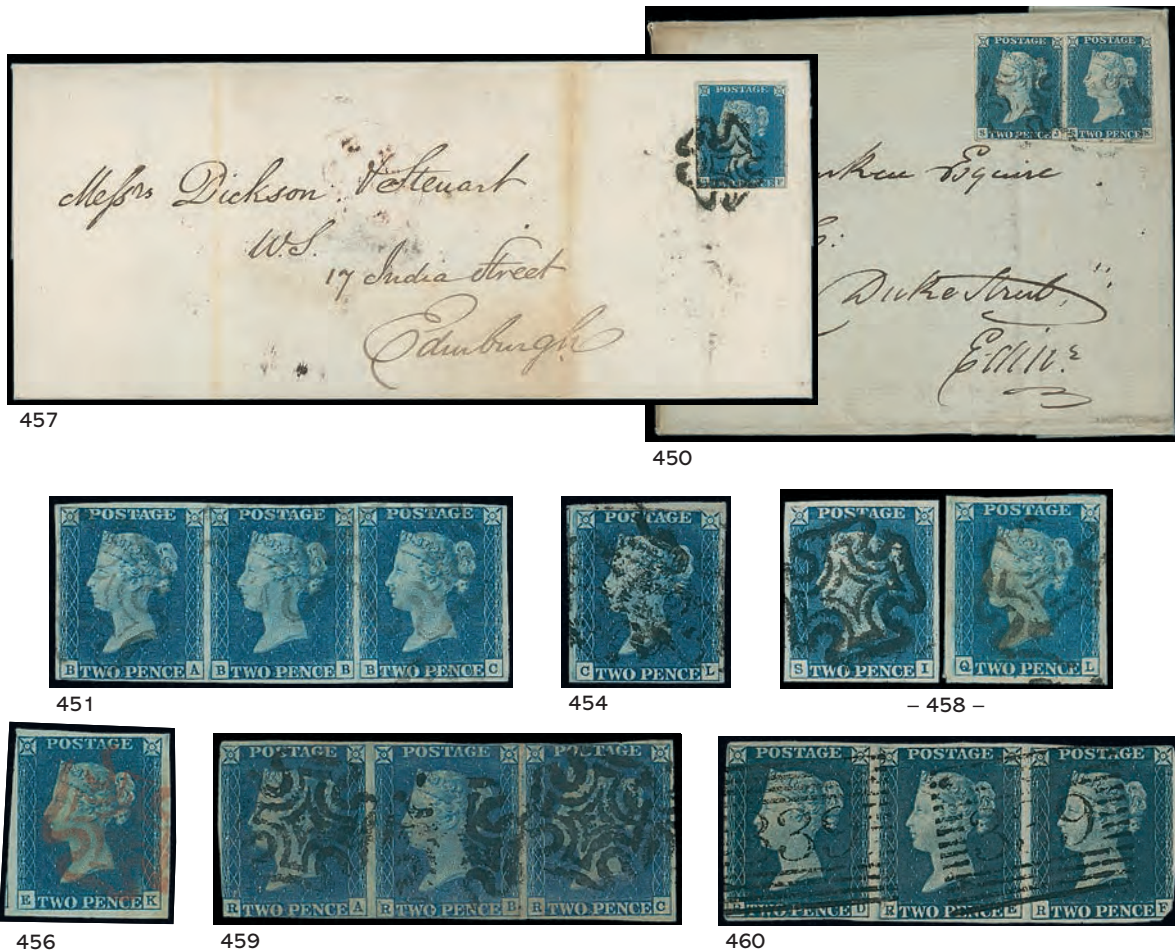 POSTAGE
Messrs Dickson & Steuart
W.S.
17 India Street
Edinburgh
457
POSTAGE POSTAGE
S TWO PENCE J TWO PENCE K
Esquire
Duke Street
Edinr
450
POSTAGE POSTAGE POSTAGE
B TWO PENCE A B TWO PENCE B B TWO PENCE C
451
POSTAGE
C TWO PENCE L
454
POSTAGE POSTAGE
S TWO PENCE I Q TWO PENCE L
– 458 –
POSTAGE
E TWO PENCE K
456
POSTAGE POSTAGE POSTAGE
R TWO PENCE A R TWO PENCE B R TWO PENCE C
459
POSTAGE POSTAGE POSTAGE
TWO PENCE D R TWO PENCE E R TWO PENCE F
460